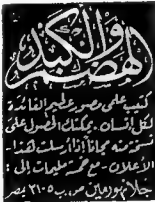 الهضم والكبد
كتيب علمى مصور عظيم الفائدة
لكل انسان. يمكنك الحصول على
نسخة منه مجاناً اذا أرسلت هذا
الاعلان - مع خمسة مليمات إلى :
جلانو ورامين ص.ب ٢١٠٥ مصر